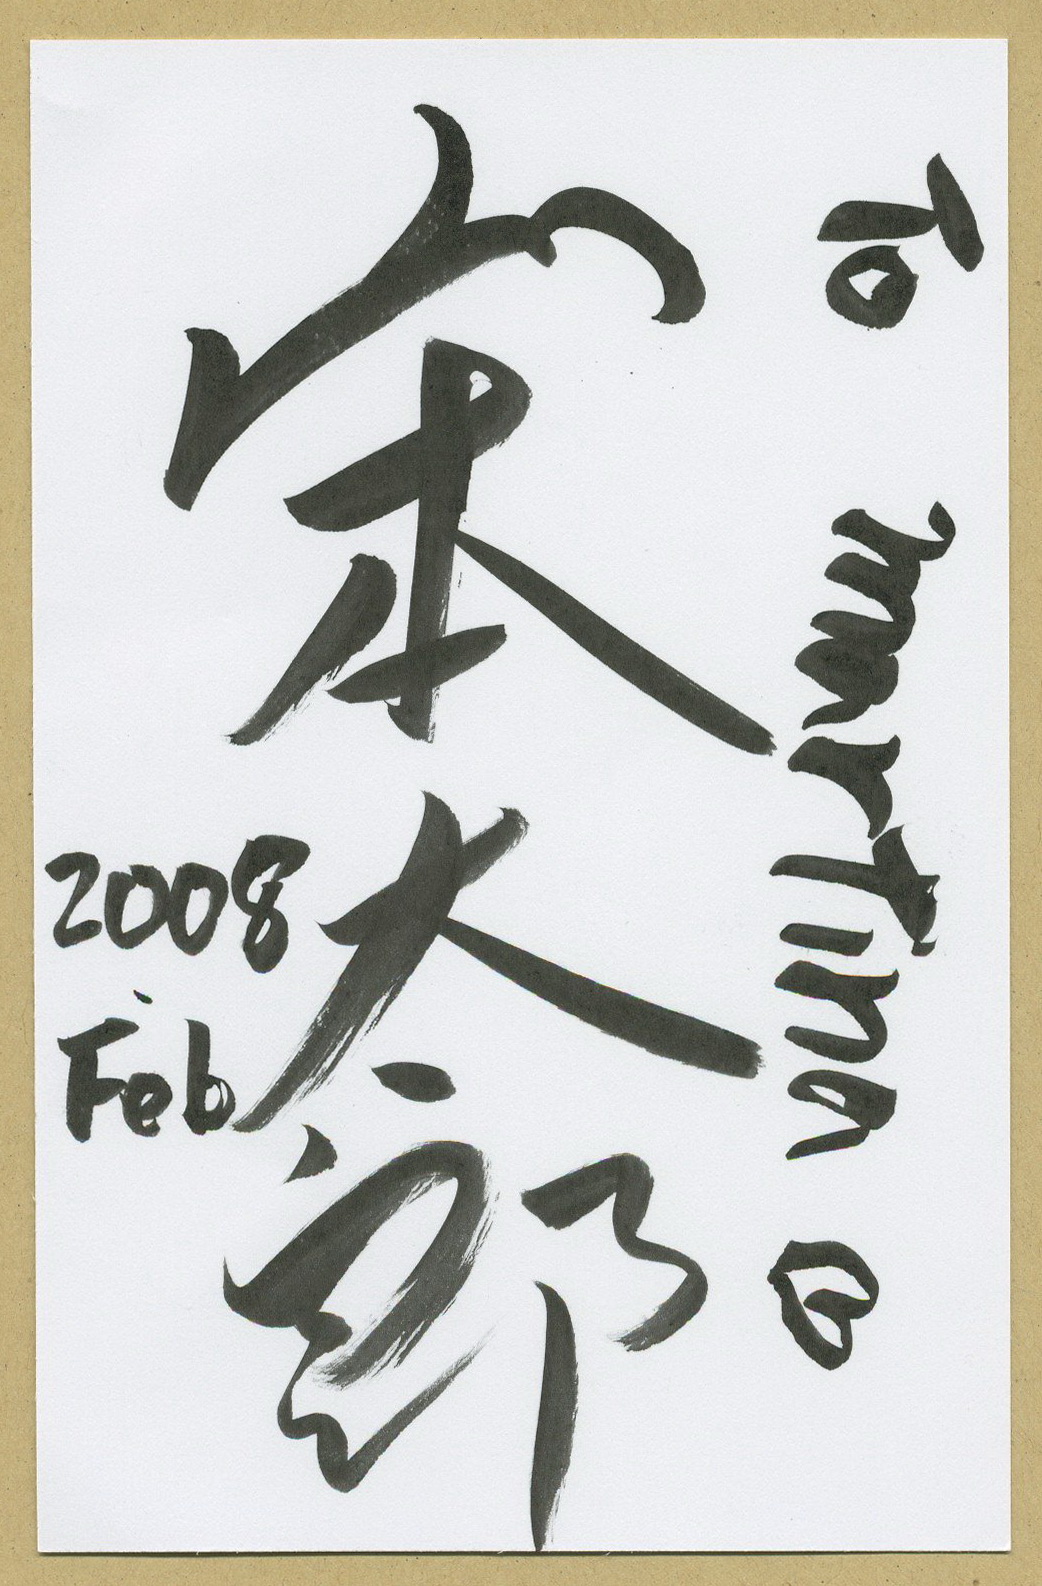 To marTina ♡
山本太郎
2008.
Feb